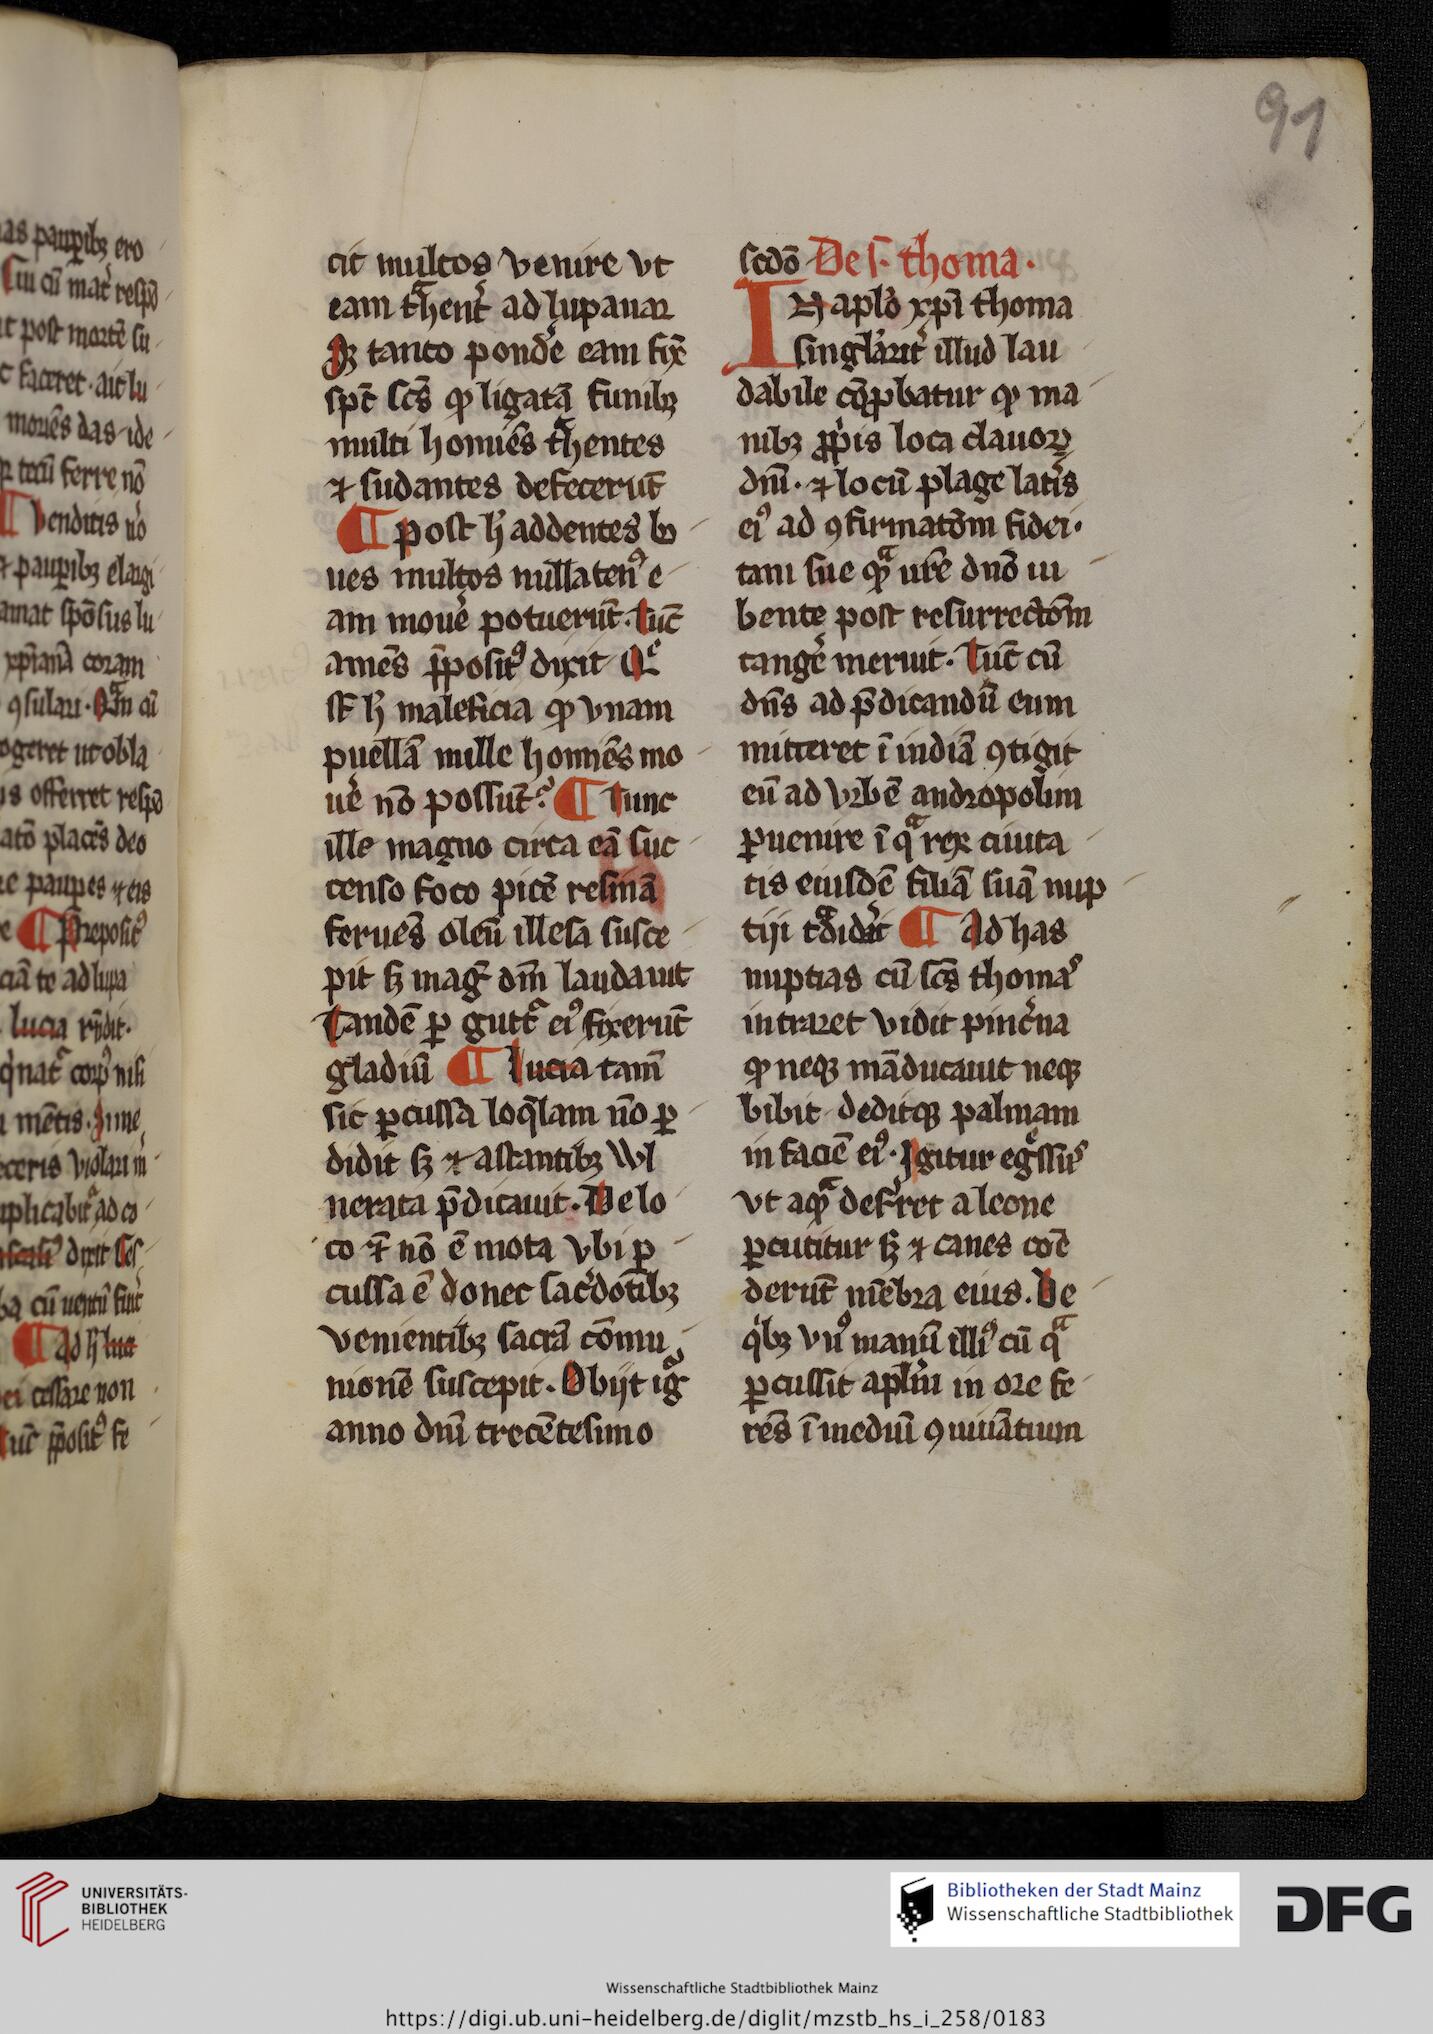 91
cit multos venire vt
eam tͣhent᷑ ad lupanar
Sꝫ tanto ponde᷑ eam fix̄
sp̄c sc̄s ꝙ ligatā funibꝫ
multi homīes tͣhentes
⁊ sudantes defecerūt
¶ post h̄ addentes bo
ues multos nullatenꝰ e
am moue᷑ potuerūt. Tūc
amēs p̄positꝰ dixit Qͤ
st̄ h̄ maleficia ꝙ vnam
puellā mille homīes mo
ue᷑ nō possūt? ¶ Tunc
ille magno circa eā suc
censo foco picē resinā
feruēs oleū illesa susce
pit sꝫ maḡ dm̄ laudauit
Tandē ꝑ gutt᷑ eiꝰ fixerūt
gladiū ¶ Lucia tam̄
sic ꝑcussa loq̄lam nō ꝑ
didit sꝫ ⁊ astantibꝫ wl
nerata p̄dicauit. De lo
co ⁊̄ nō ē mota vbi ꝑ
cussa ē donec sac᷑dotibꝫ
venientibꝫ sacrā cōmu
nionē suscepit. Obijt igͣ
anno dn̄i trecētesimo
scd̄o De s. thoma.
In aplo᷑ xp̄i thoma
singlar᷑it᷑ illud lau
dabile cōꝓbatur ꝙ ma
nibꝫ ꝓpͥis loca clauoꝝ
dn̄i. ⁊ locū plage lat᷑is
eiꝰ ad ꝯfirmatōm fidei.
tam sue qͣ nr̄e dn̄o iu
bente post resurrectōm
tange᷑ meruit. Tūc cū
dn̄s ad p̄dicandū eum
mitteret ī indiā ꝯtigit
eū ad vrbē andropolim
ꝑuenire ī qͣ rex ciuita
tis eiusdē filiā suā nup
tij tͣdid᷑it ¶ Ad has
nuptias cū sc̄s thomas
intraret vidit pinc᷑na
ꝙ neqꝫ māducauit neqꝫ
bibit deditqꝫ palmam
in faciē eiꝰ. Igitur egͤssus
vt aqͣ def᷑ret a leone
ꝑcutitur sꝫ ⁊ canes cōe
derūt mēbra eius. De
qͥbꝫ vnꝰ manū illiꝰ cū qͣ
ꝑcussit aplm̄ in ore fe
rēs ī mediū ꝯuiuātium
UNIVERSITÄTS-
BIBLIOTHEK
HEIDELBERG
Bibliotheken der Stadt Mainz
Wissenschaftliche Stadtbibliothek
DFG
Wissenschaftliche Stadtbibliothek Mainz
https://digi.ub.uni-heidelberg.de/diglit/mzstb_hs_i_258/0183